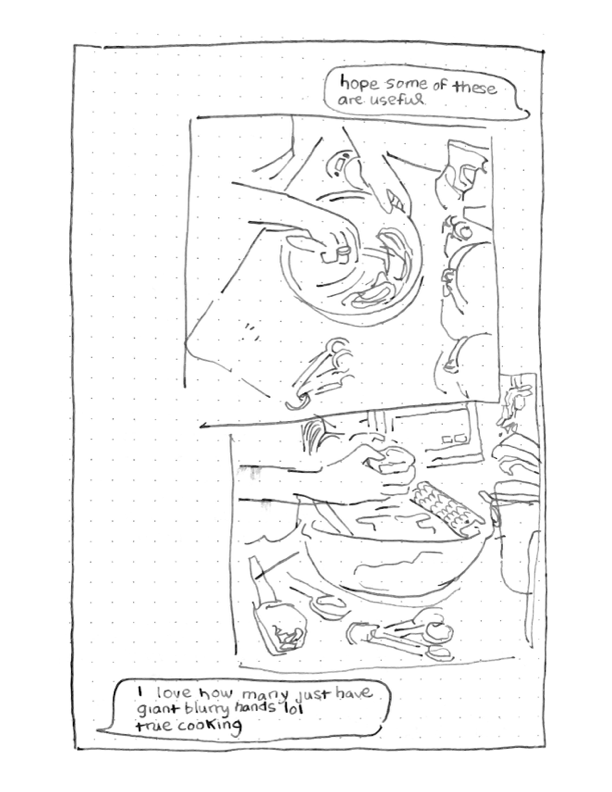 hope some of these
are useful
I love how many just have
giant blurry hands lol
true cooking